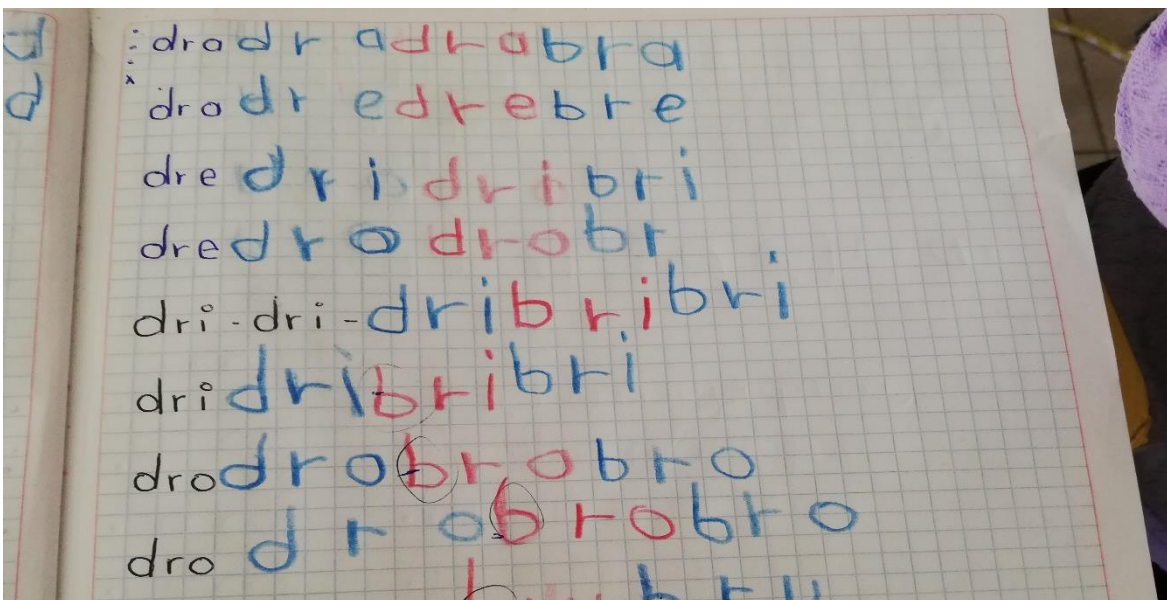 dra dr a dra bra
dra dr e dre bre
dre dri dri bri
dre dro dro br
dri-dri-dri bri bri
dri dri bri bri
dro dro bro bro
dro dro bro bro
bru